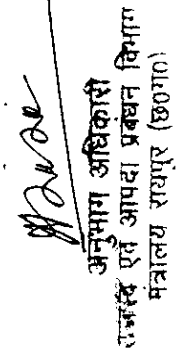 अनुभाग अधिकारी
राजस्व एवं आपदा प्रबंधन विभाग
मंत्रालय रायपुर (छ0ग0)